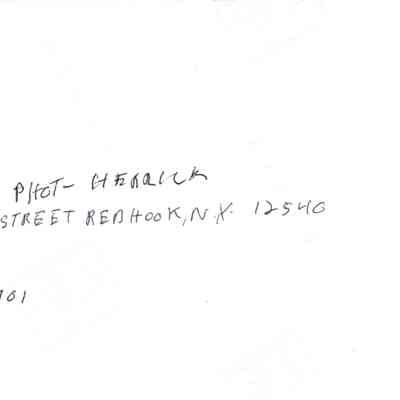 PHOT- HERRICK
STREET RED HOOK, N.Y. 12540
101